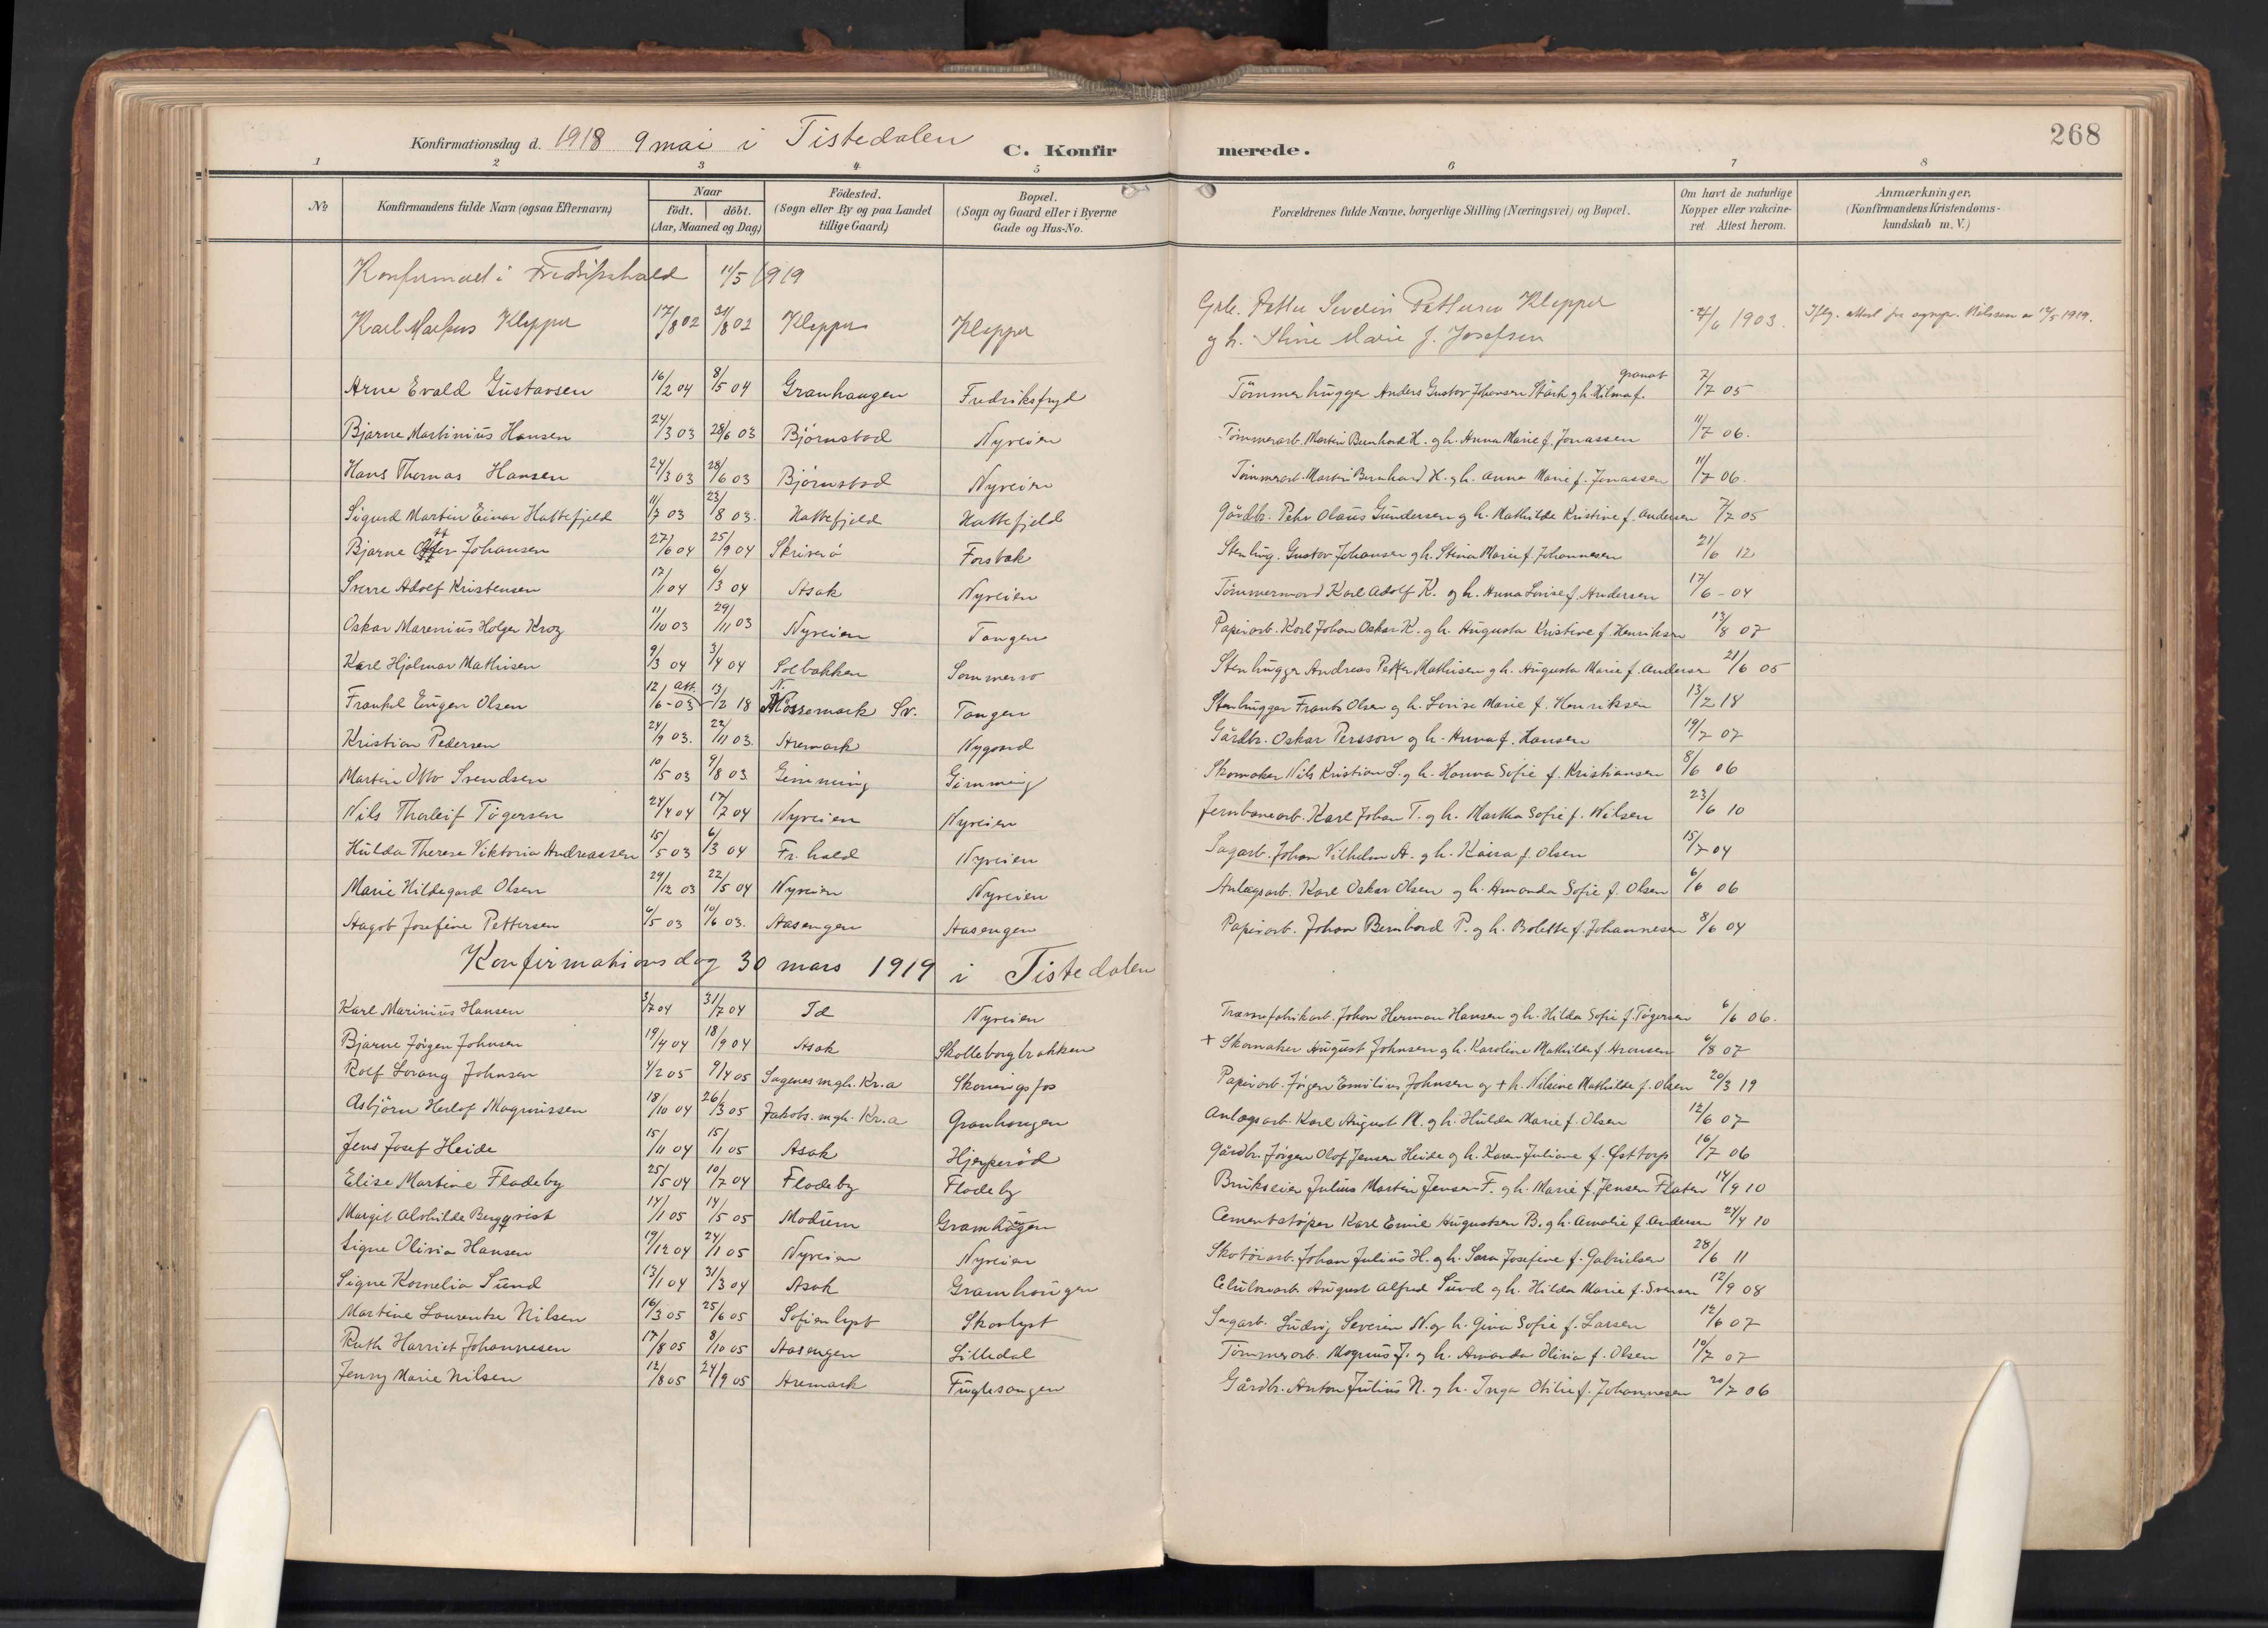 268
Konfirmationsdag d. 1918 9 mai i Tistedalen C. Konfirmerede.
1 2 3 4 5 6 7 8
No Konfirmandens fulde Navn (ogsaa Efternavn) Naar födt. döbt. (Aar, Maaned og Dag) Födested. (Sogn eller By og paa Landet tillige Gaard) Bopæl. (Sogn og Gaard eller i Byerne Gade og Hus-No. Forældrenes fulde Navne, borgerlige Stilling (Næringsvei) og Bopæl. Om havt de naturlige Kopper eller vakcineret. Attest herom. Anmærkninger. (Konfirmandens Kristendomskundskab m. V.)
Konfirmert i Fredrikshald 11/5 1919
Karl Markus Klepper 17/8 02 31/8 02 Klepper Klepper Petter Severin Pettersen Klepper /6 1903. Iflg. attest fra Nilssen av 12/5 1919.
g h. Stine Marie f. Josefsen
Arne Evald Gustavsen 16/2 04 8/5 04 Granhaugen Fredriksfryd Tömmerhugger Anders Gustav Johansen Stärk g h. Hilma f. granat 7/7 05
Bjarne Martinius Hansen 24/3 03 28/6 03 Björnstad Nyveien Tömmerarb. Martin Bernhard H. og h. Anna Marie f. Jonassen 11/7 06.
Hans Thomas Hansen 24/3 03 28/6 03 Björnstad Nyveien Tömmerarb. Martin Bernhard H. g h. Anna Marie f. Jonassen 11/7 06.
Sigurd Martin Einar Hattefjeld 11/7 03 23/8 03. Hattefjeld Hattefjeld Gårdbr. Pehr Olaus Gundersen g h. Mathilde Kristine f. Andersen 7/7 05
Bjarne Johansen 27/6 04 25/9 04 Skriverö Forsbak Stenhug. Gustav Johansen g h. Stina Marie f. Johannesen 21/6 12
Sverre Adolf Kristensen 17/1 04 6/3 04 Asak Nyveien Tömmermand Karl Adolf K. og h. Anna Lovise f. Andersen 17/6 - 04
Oskar Marenius Holger Krog 11/10 03 29/11 03 Nyveien Tangen Papirarb. Karl Johan Oskar K. g h. Augusta Kristine f. Henriksen 13/8 07
Karl Hjalmar Mathisen 9/3 04 3/4 04 Solbakken Sommerro Stenhugger Andreas Petter Mathisen g h. Augusta Marie f. Andersen 21/6 05
Frankel Eugen Olsen 12/6 - 03 att. 13/2 18 N. Mossemark Sv. Tangen Stenhugger Frants Olsen g h. Lovise Marie f. Henriksen 13/2 18
Kristian Pedersen 24/9 03. 22/11 03. Aremark Nygaard Gårdbr. Oskar Persson g h. Anna f. Hansen 19/7 07
Martin Otto Svendsen 10/5 03 9/8 03 Gimming Gimming Skomaker Nils Kristian S. g h. Hanna Sofie f. Kristiansen 8/6 06
Nils Thorleif Tögersen 24/4 04 17/7 04 Nyveien Nyveien Jernbanearb. Karl Johan T. g h. Martha Sofie f. Nilsen 23/6 10
Hulda Therese Viktoria Andreassen 15/5 03 6/3 04 Fr. hald Nyveien Sagarb. Johan Vilhelm A. g h. Kaisa f. Olsen 15/7 04
Marie Hildegard Olsen 29/12 03 22/5 04 Nyveien Nyveien Anlægsarb. Karl Oskar Olsen og h. Amanda Sofie f. Olsen 6/6 06
Aagot Josefine Pettersen 6/5 03 10/6 03. Aasengen Aasengen Papirarb. Johan Bernhard P. og h. Bolette f. Johannesen 8/6 04
Konfirmationsdag 30 mars 1919 i Tistedalen
Karl Marinius Hansen 3/7 04 31/7 04 Id Nyveien Trævarefabrikarb. Johan Herman Hansen g h. Hilda Sofie f. Tögersen 6/6 06.
Bjarne Jörgen Johnsen 19/4 04 18/9 04 Asak Skolleborgbakken + Skomaker August Johnsen g h. Karoline Mathilde f. Aronsen 6/8 07
Rolf Lorang Johnsen 4/2 05 9/4 05 Sagenes mgh. Kr.a Skoningsfos Papirarb. Jörgen Emilius Johnsen og + h. Nilsine Mathilde f. Olsen 20/3 19
Asbjörn Herlof Magnussen 18/10 04 26/3 05 Jakobs. mgh. Kr.a Granhougen Anlægsarb. Karl August M. g h. Hulda Marie f. Olsen 12/6 07
Jens Josef Heide 15/11 04 15/1 05 Asak Hjerperöd Gårdbr. Jörgen Olof Jensen Heide og h. Karen Juliane f. Østtorp 16/7 06
Elise Martine Flodeby 25/5 04 10/7 04 Flodeby Flodeby Brukseier Julius Martin Jensen F. g h. Marie f. Jensen Flaten 14/9 10
Margit Alvhilde Bergqvist 14/1 05 14/5 05 Modum Granhögen Cementstöper Karl Emil Augustsen B. g h. Amalie f. Andersen 24/4 10
Signe Olivia Hansen 19/12 04 24/1 05 Nyveien Nyveien Skotöiarb. Johan Julius H. g h. Sara Josefine f. Gabrielsen 28/6 11
Signe Kornelia Sund 13/1 04 31/3 04 Asak Gramhougen Celulosearb. August Alfred Sund g h. Hilda Marie f. Svensen 12/9 08
Martine Laurentse Nilsen 16/3 05 25/6 05 Sofienlyst Skovlyst Sagarb. Ludvig Severin N. og h. Gina Sofie f. Larsen 12/6 07
Ruth Harriet Johannesen 17/8 05 8/10 05 Aasengen Lilledal Tömmerarb. Magnus J. og h. Amanda Olivia f. Olsen 10/7 07
Jenny Marie Nilsen 12/8 05 24/9 05 Aremark Fuglesangen Gårdbr. Anton Julius N. og h. Inga Otilie f. Johannesen 20/7 06